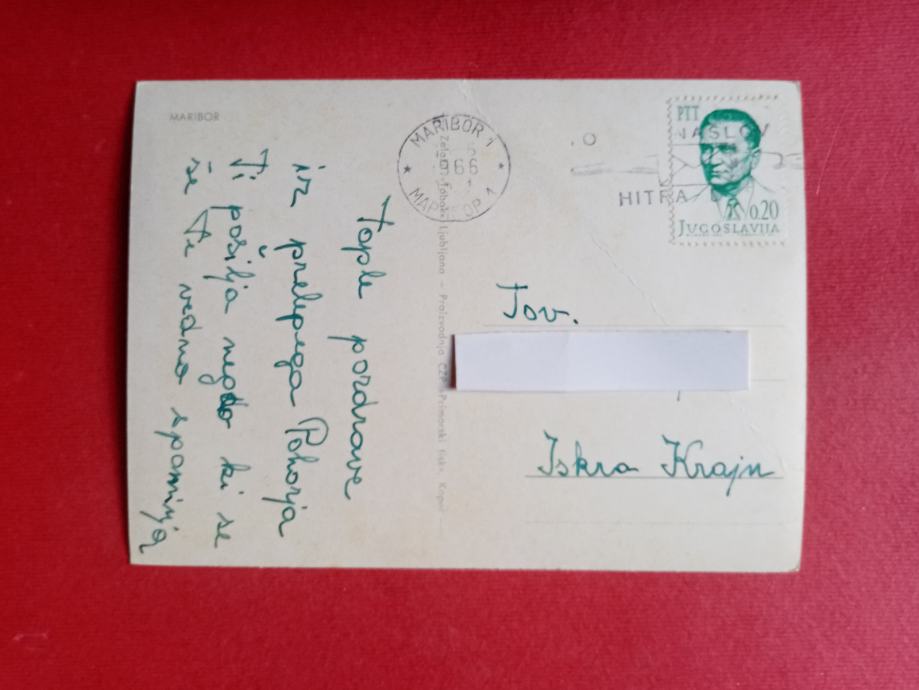 MARIBOR
Tople pozdrave
iz prelepega Pohorja
Ti pošilja negdo ki se
še Ti vedno spominja
Ljubljana – Proizvodnja ČZP »Primorski tisk« Koper
MARIBOR 1
66
MARIBOR 1
NASLOV
HITRA
PTT
0.20
JUGOSLAVIJA
Tov.
Iskra Kranj